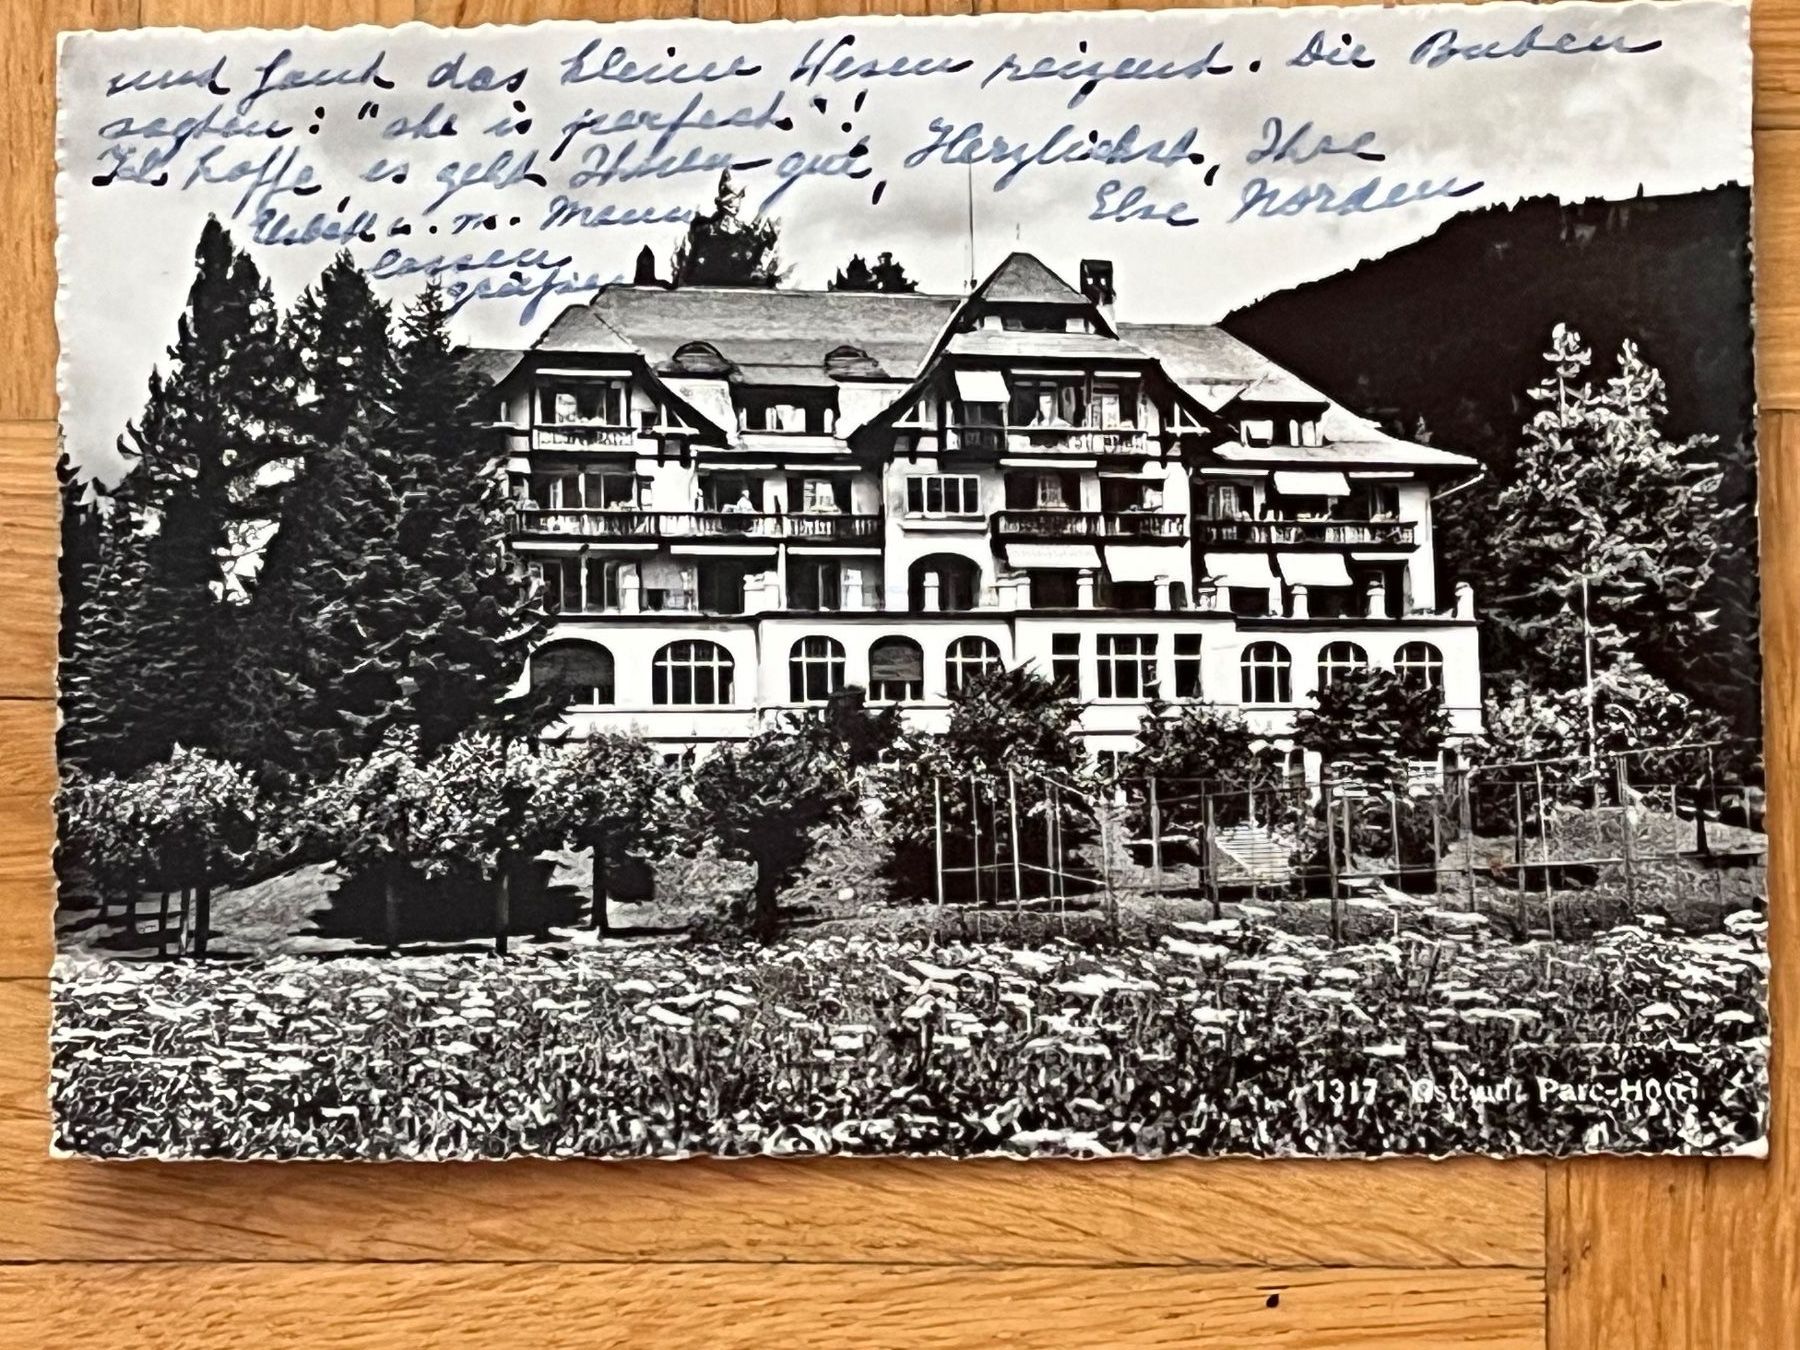 und fand das kleine Wesen reizend. Die Buben
sagten: "she is perfect"!
Ich hoffe, es geht Ihnen gut, Herzlichst, Ihre
Else Norden
u. m. Mann
lassen
grüßen
1317 Gstaad, Parc-Hôtel